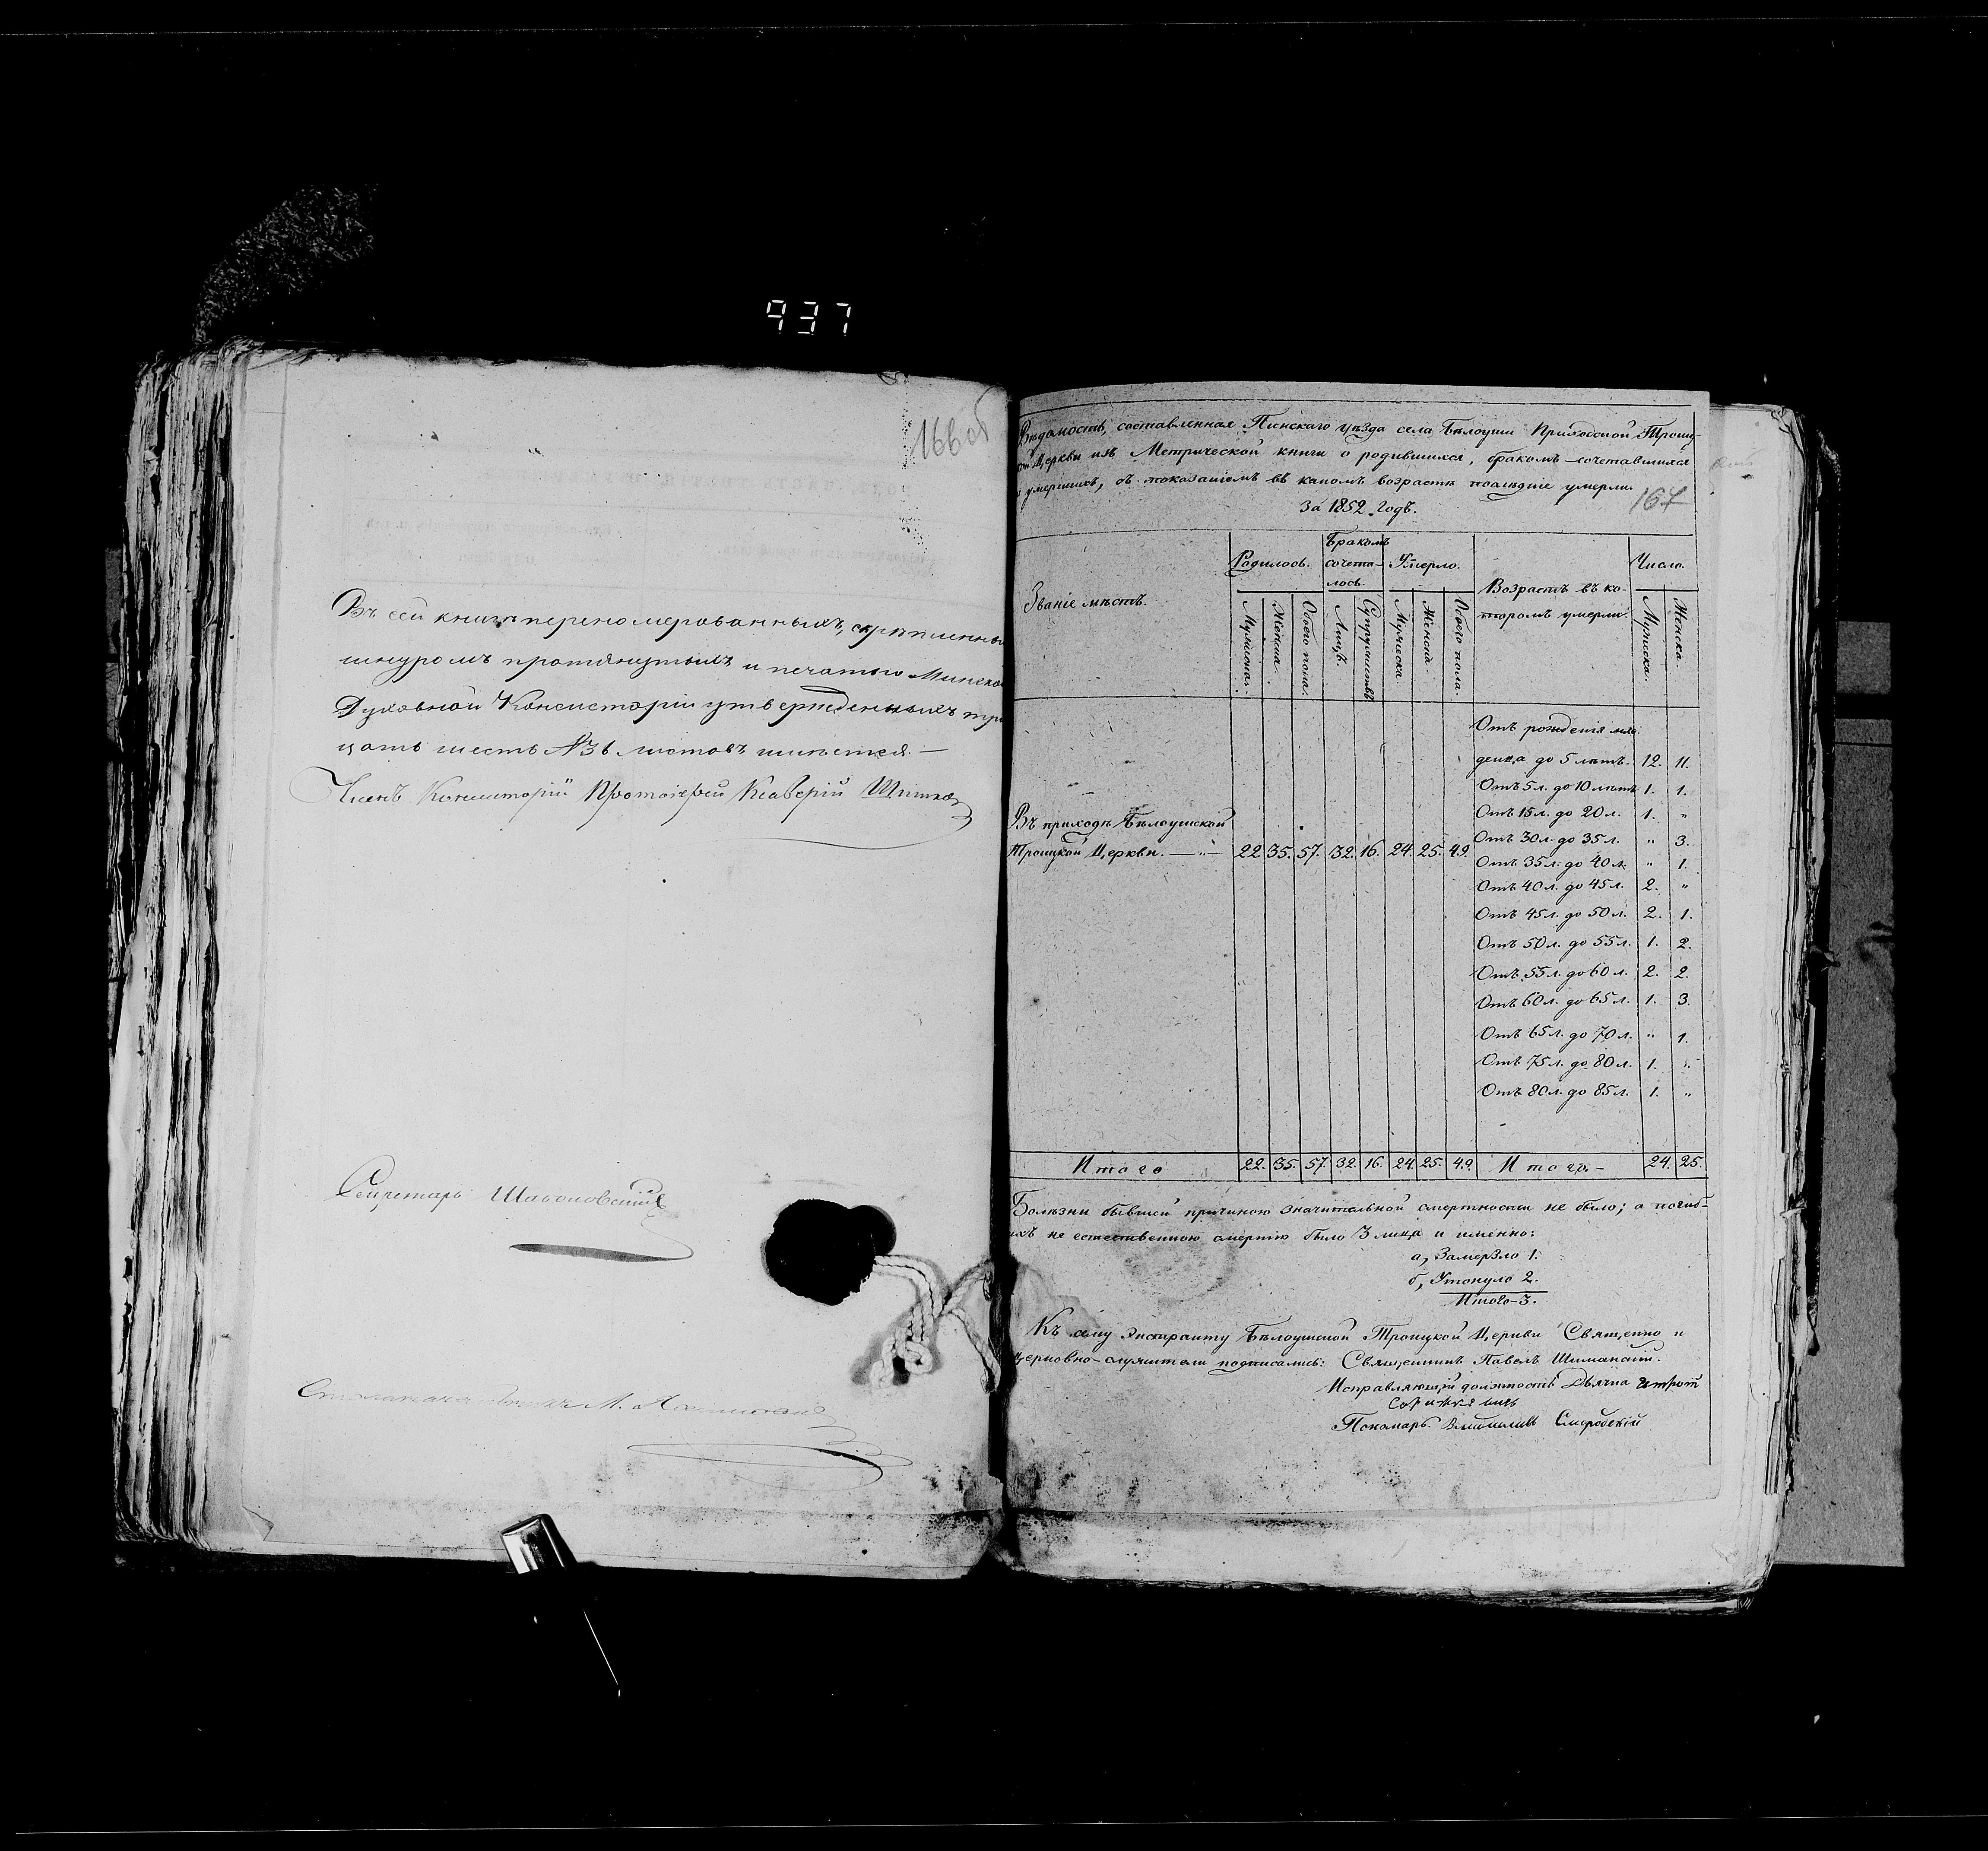 937
166 об
Въ сей книгѣ перенумерованныхъ, скрѣпленны
шнуромъ протянутыхъ и печатью Минско
Духовной Консисторіи утвержденныхъ три
цать шесть №36 листовъ имѣется. —
Членъ Консисторіи Протоіерей Ксаверій
Секретарь
Ведомость, составленная Пинскаго уѣзда села Бѣлоуши Приходской Троиц-
кой Церкви изъ Метрической книги о родившихся, бракомъ сочетавшихся
и умершихъ, съ показаніемъ въ какомъ возрастѣ послѣдніе умерли.
167
За 1852 годъ.
Званіе мѣстъ. Родилось. Бракомъ сочета-лось. Умерло. Возрастъ въ ко-торомъ умерли. Число.
Мужска. Женска. Обоего пола. Лицъ. Супружествъ Мужска. Женска. Обоего пола. Мужска. Женска.
Отъ рожденія мла-
денца до 5 лѣтъ. 12. 11.
Отъ 5 л. до 10 лѣтъ 1. 1.
Отъ 15 л. до 20 л. 1. "
Отъ 30 л. до 35 л. " 3.
Отъ 35 л. до 40 л. " 1.
Отъ 40 л. до 45 л. 2. "
Отъ 45 л. до 50 л. 2. 1.
Отъ 50 л. до 55 л. 1. 2.
Отъ 55 л. до 60 л. 2. 2.
Отъ 60 л. до 65 л. 1. 3.
Отъ 65 л. до 70 л. " 1.
Отъ 75 л. до 80 л. 1.
Отъ 80 л. до 85 л. 1. "
Въ приходѣ Бѣлоушской
Троицкой Церкви. — " — 22. 35. 57. 32. 16. 24. 25. 49.
Итого 22. 35. 57. 32. 16. 24. 25. 49. Итого. — 24. 25.
Болѣзни бывшей причиною значительной смертности не было; а погиб-
ихъ не естественною смертію было 3 лица и именно:
а, Замерзло 1.
б, Утонуло 2.
Итого — 3.
Къ сему экстракту Бѣлоушской Троицкой Церкви Священно и
церковно-служители подписались: Священникъ Павелъ Шиманскій.
Исправляющій должность Дьячка
Пономарь